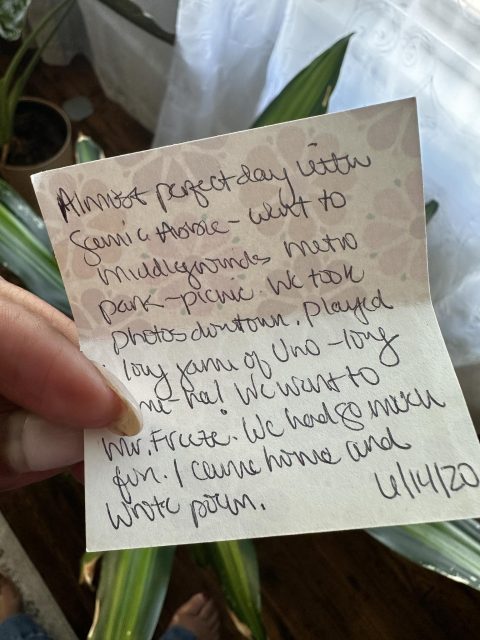 Almost perfect day with
Sami & Abbie - went to
Middlegrounds metro
park - picnic. We took
photos downtown. Played
long game of Uno - long
me - ha! We went to
Mr. Freeze. We had so much
fun. I came home and
wrote poem.
6/14/20